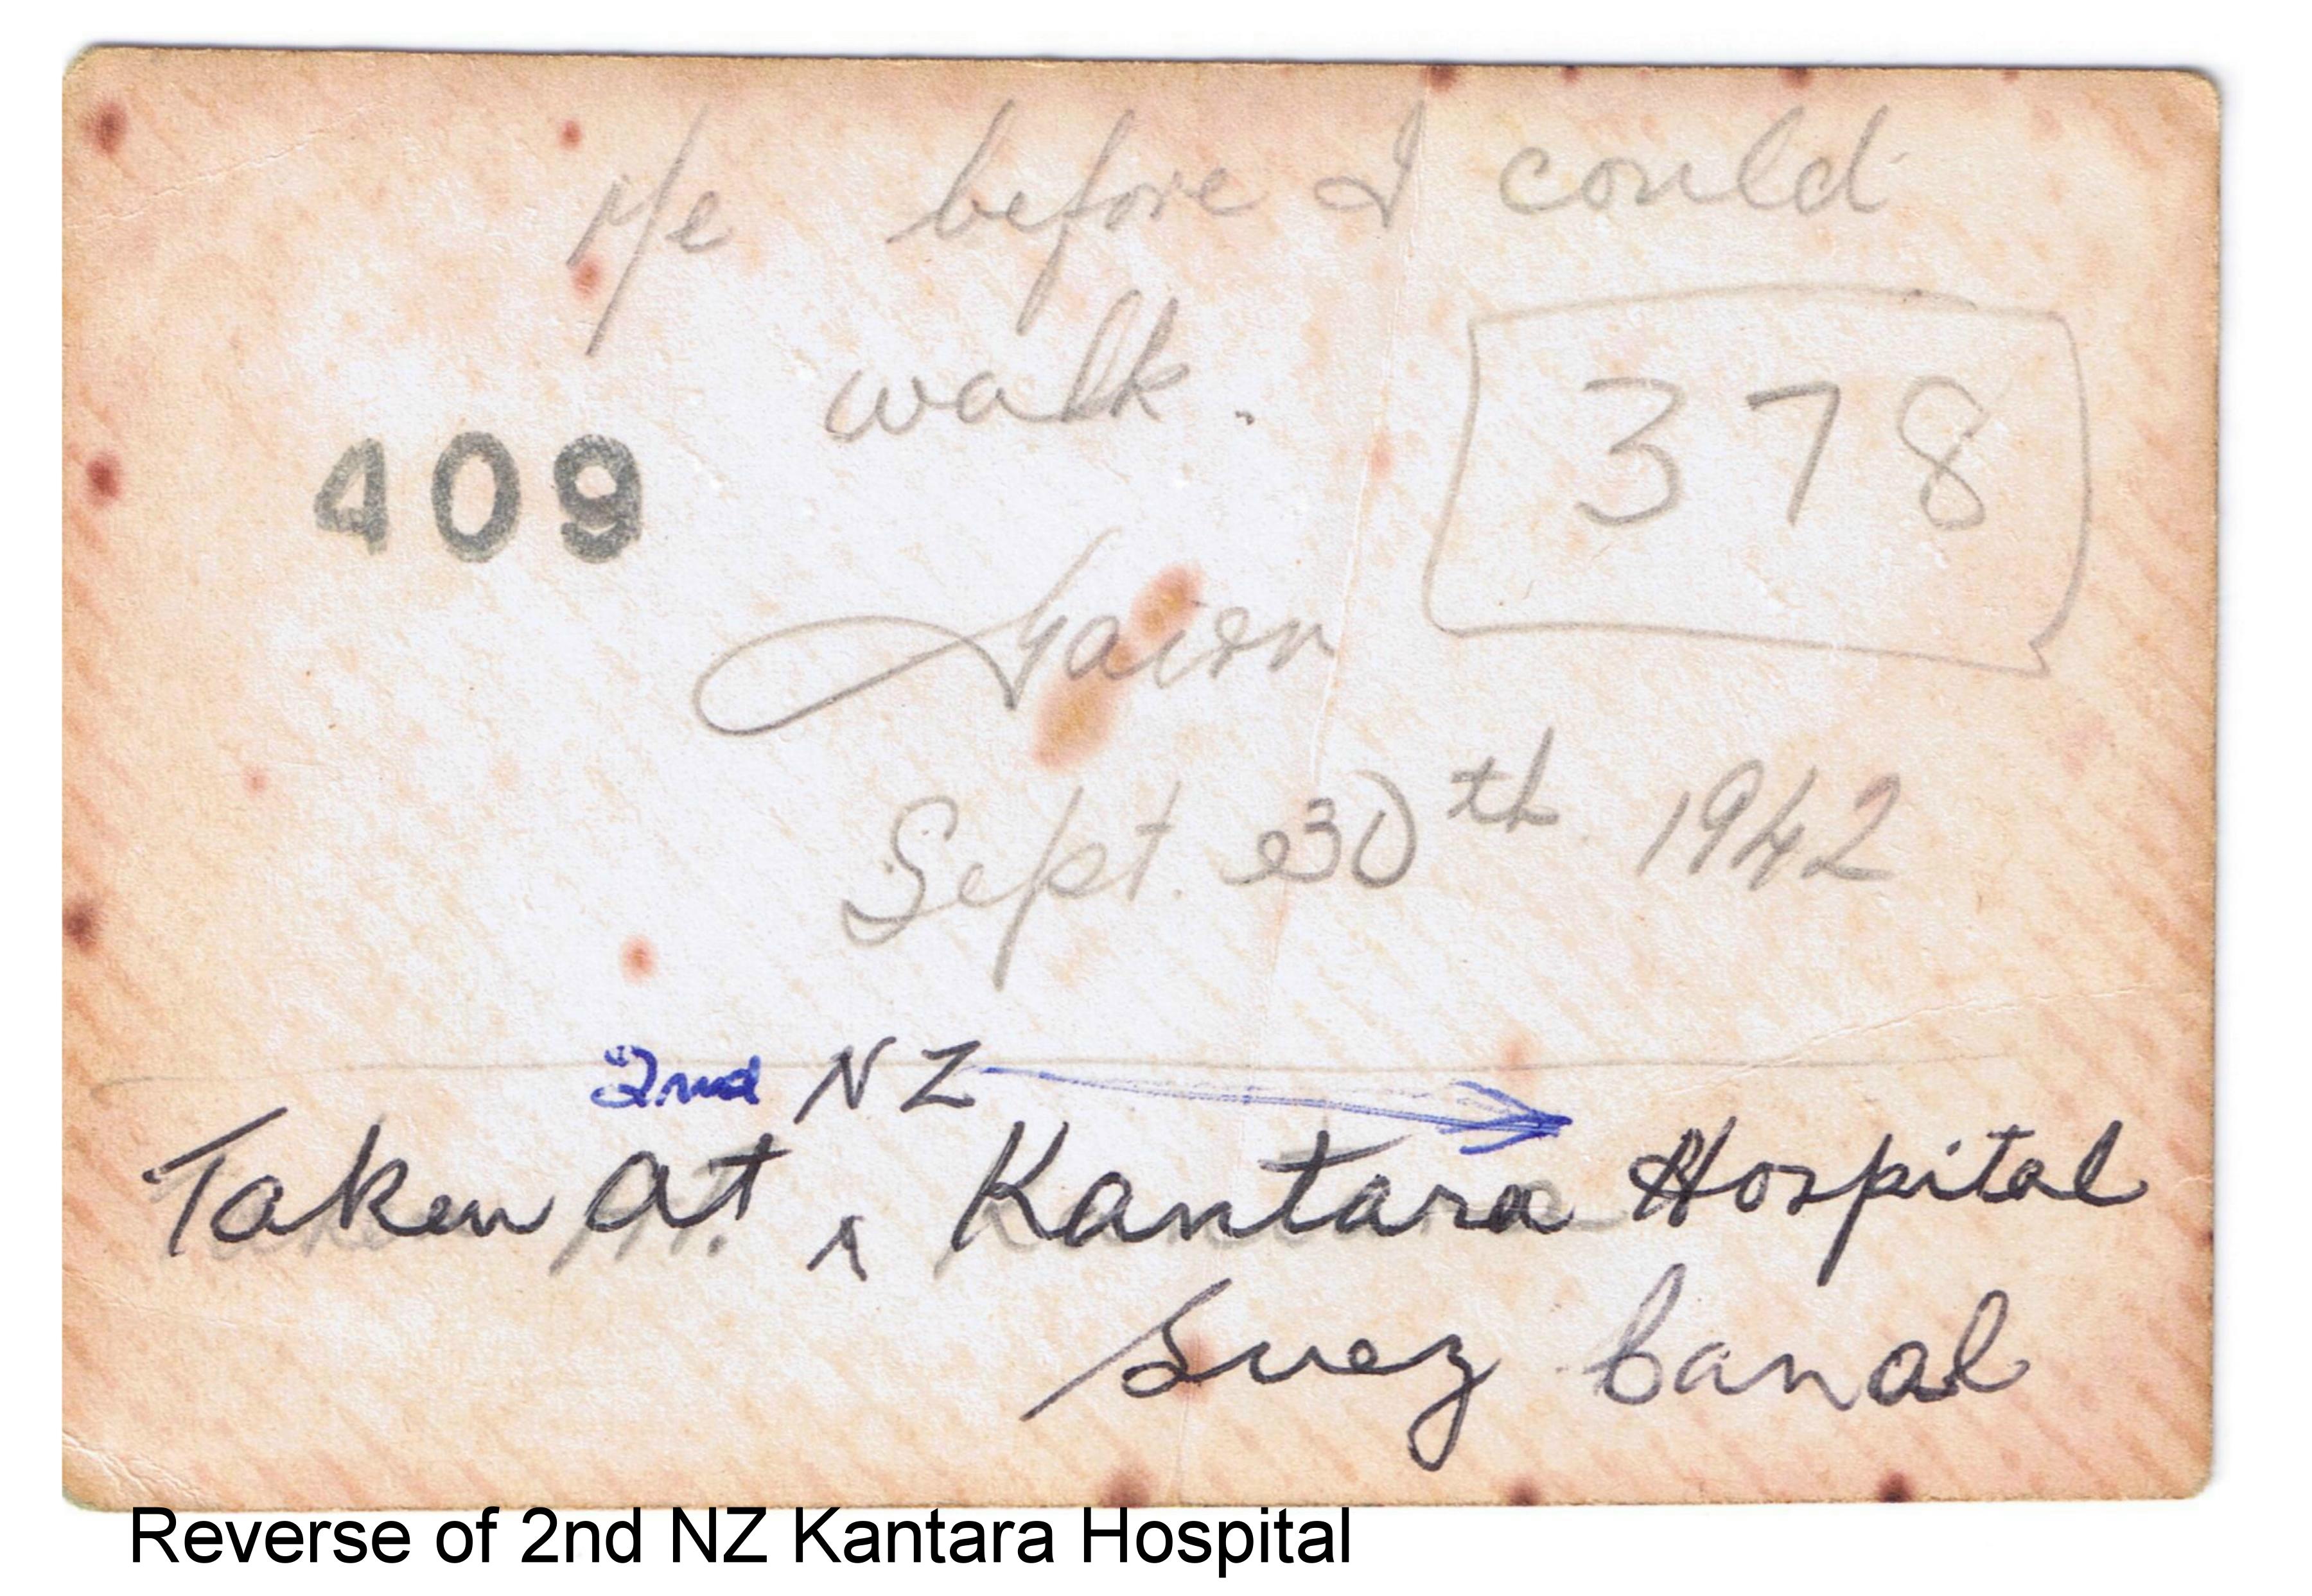 Me before I could
walk.
378
409
Sept. 30th 1942
2nd NZ
Taken At ^ Kantara Hospital
Suez Canal
Reverse of 2nd NZ Kantara Hospital